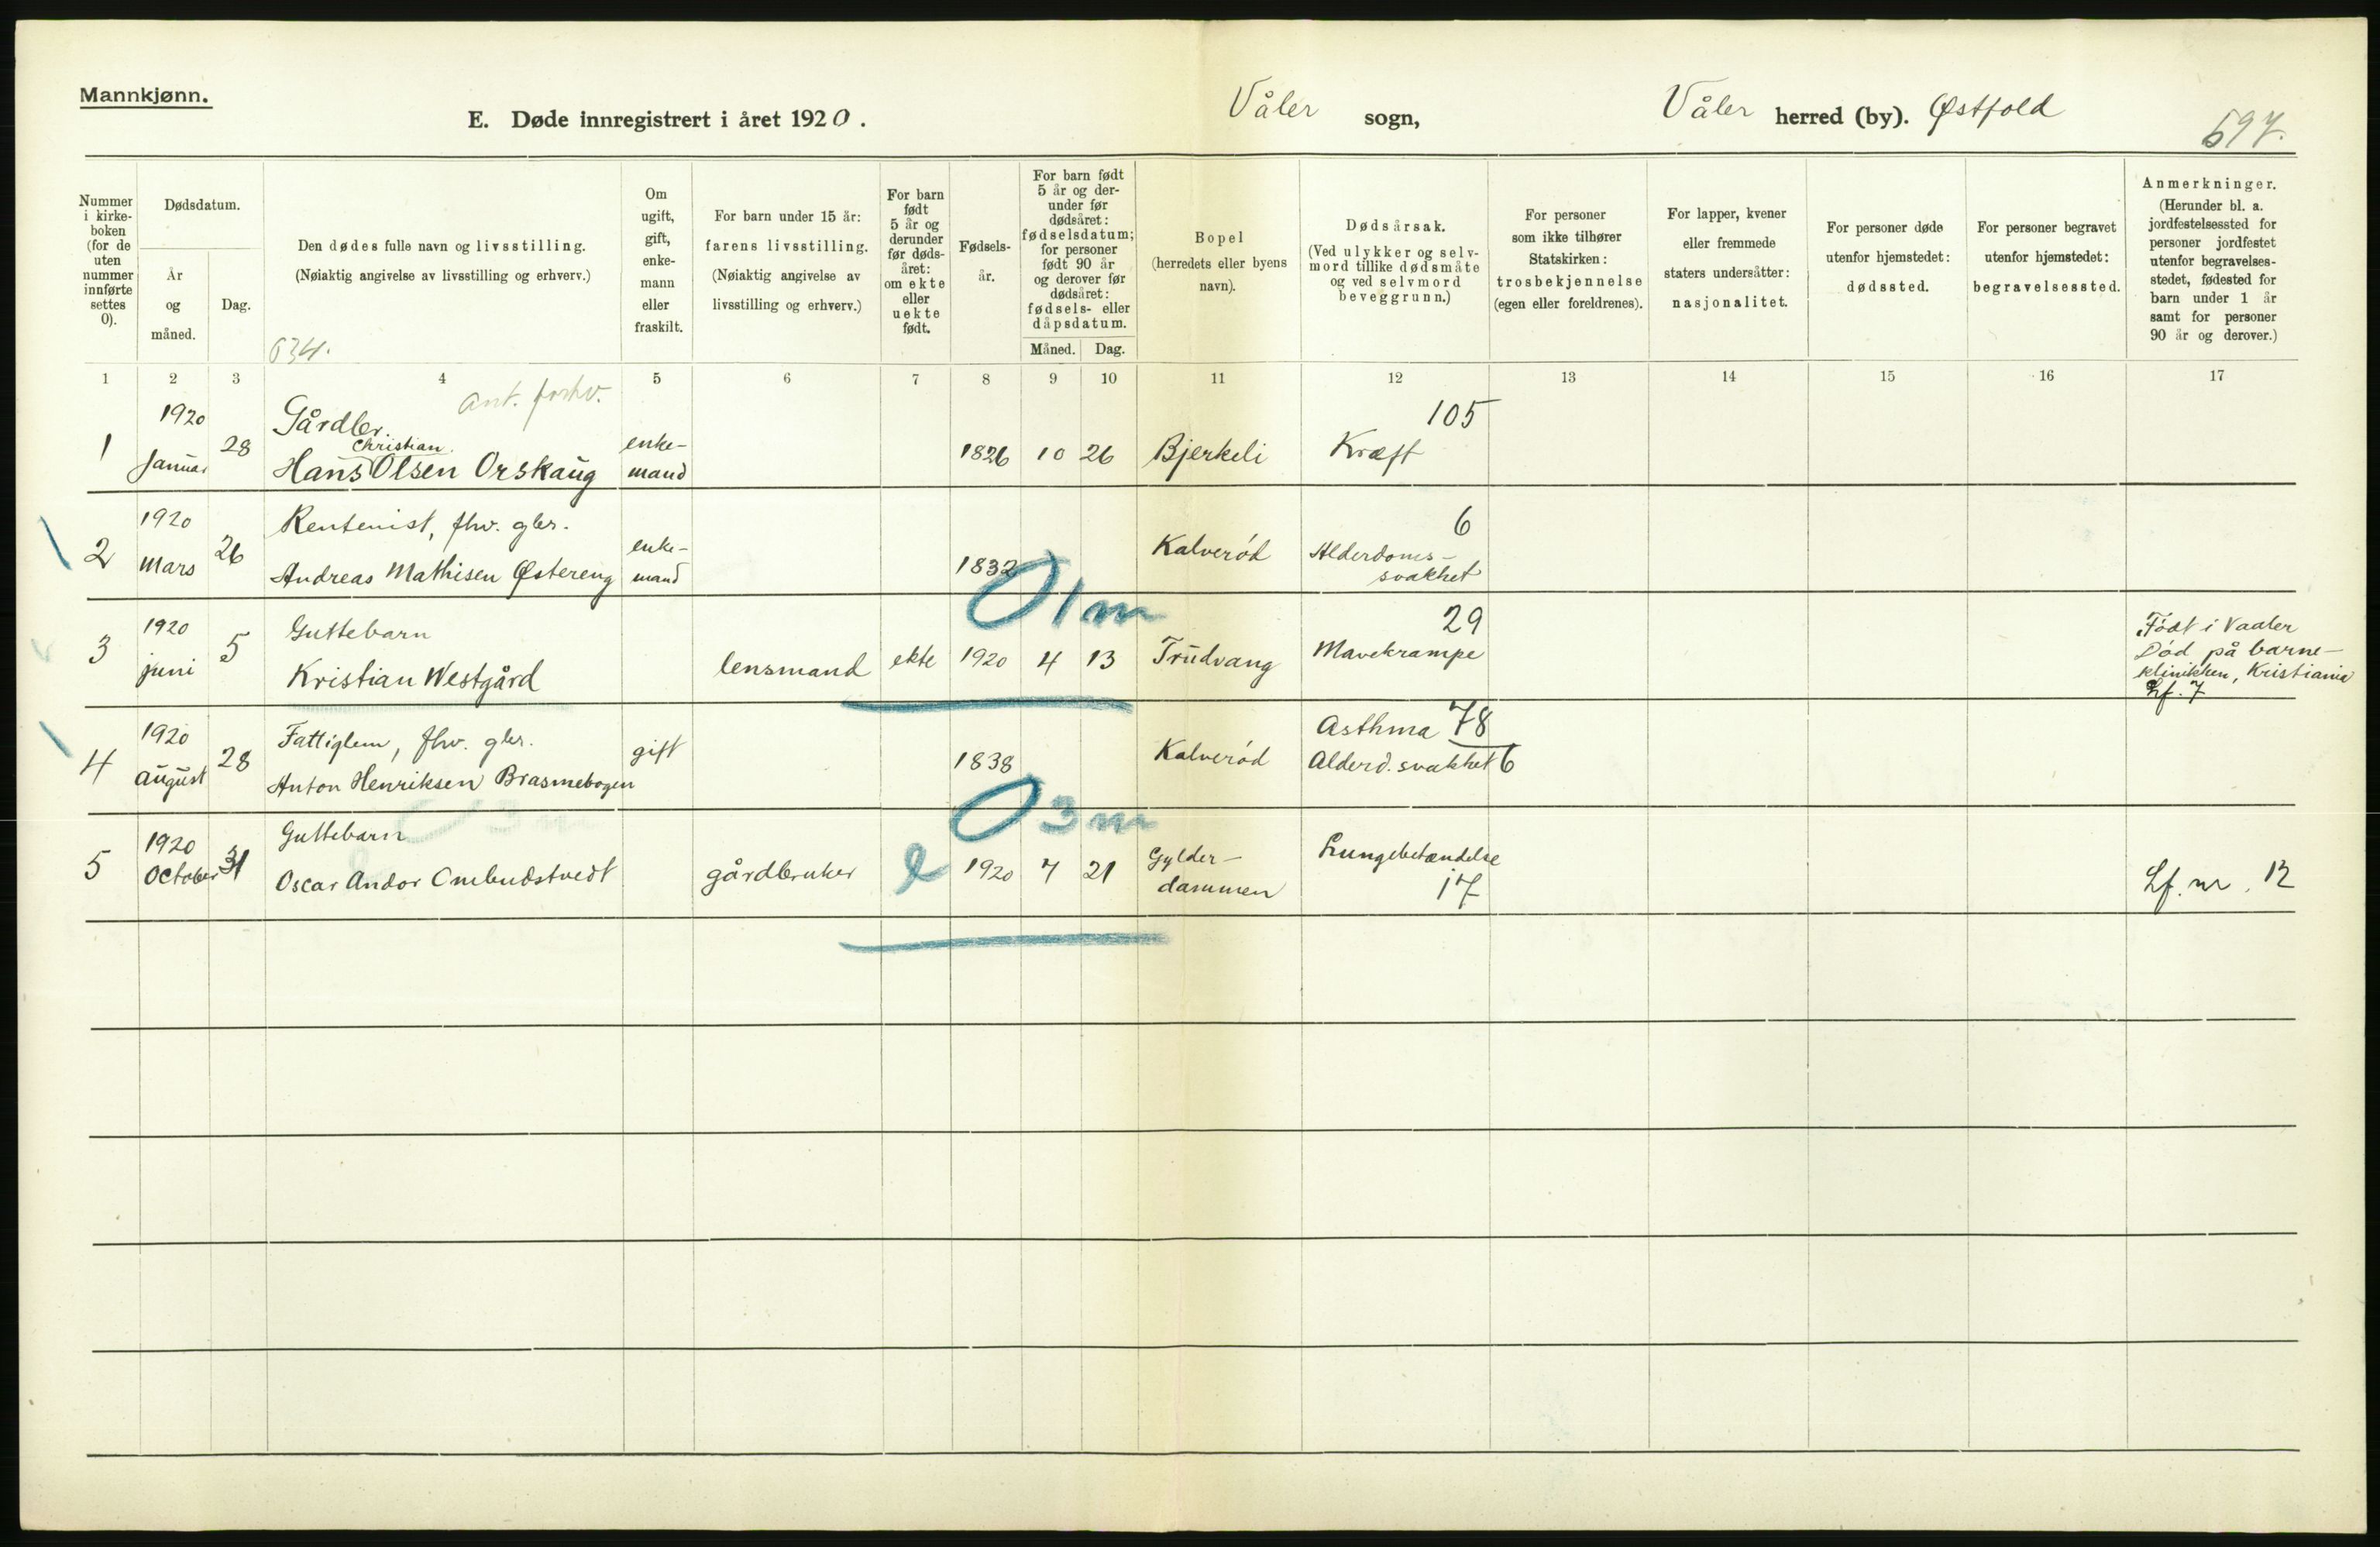 Mannkjønn.
E. Døde innregistrert i året 1920.
Våler sogn,
Våler herred (by). Østfold
597.
Nummer i kirke-boken (for de uten nummer innførte settes 0).
Dødsdatum.
År og måned.
Dag.
Den dødes fulle navn og livsstilling.
(Nøiaktig angivelse av livsstilling og erhverv.)
634.
Om ugift, gift, enke-mann eller fraskilt.
For barn under 15 år:
farens livsstilling.
(Nøiaktig angivelse av
livsstilling og erhverv.)
For barn født 5 år og derunder før døds-året: om ekte eller uekte født.
Fødsels-år.
For barn født 5 år og der-under før dødsåret: fødselsdatum; for personer født 90 år og derover før dødsåret: fødsels- eller dåpsdatum.
Måned. Dag.
Bopel
(herredets eller byens
navn).
Dødsårsak.
(Ved ulykker og selv-
mord tillike dødsmåte
og ved selvmord
beveggrunn.)
For personer
som ikke tilhører
Statskirken:
trosbekjennelse
(egen eller foreldrenes).
For lapper, kvener
eller fremmede
staters undersåtter:
nasjonalitet.
For personer døde
utenfor hjemstedet:
dødssted.
For personer begravet
utenfor hjemstedet:
begravelsessted.
Anmerkninger.
(Herunder bl. a.
jordfestelsessted for
personer jordfestet
utenfor begravelses-
stedet, fødested for
barn under 1 år
samt for personer
90 år og derover.)
1 2 3 4 5 6 7 8 9 10 11 12 13 14 15 16 17
ant. forhv.
1 1920 Januar 28 Gårdbr.
Christian
Hans Olsen Orskaug enke-mand 1826 10 26 Bjerkeli Kræft 105
2 1920 mars 26 Rentenist, fhv. gbr.
Andreas Mathisen Østereng enke-mand 1832 Kalverød 6
Alderdoms-
svakhet
01m
3 1920 juni 5 Guttebarn
Kristian Westgård lensmand ekte 1920 4 13 Trudvang 29
Mavekrampe
Født i Vaaler
Død på barne-
klinikken, Kristiania
Lf. 7
4 1920 august 28 Fattiglem, fhv. gbr.
Anton Henriksen Brasmebogen gift 1838 Kalverød Asthma 78
Alderd. svakhet 6
03m
5 1920 October 31 Guttebarn
Oscar Andor Ombudstvedt gårdbruker e 1920 7 21 Gylder-
dammen
Lungebetændelse
17
Lf. nr. 12